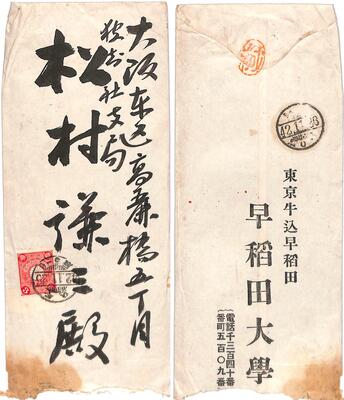 大阪東区高麗橋五丁目
報知社支局
松村謙三殿
東京牛込早稲田
早稲田大學
電話千三百四十番
番町五百〇九番